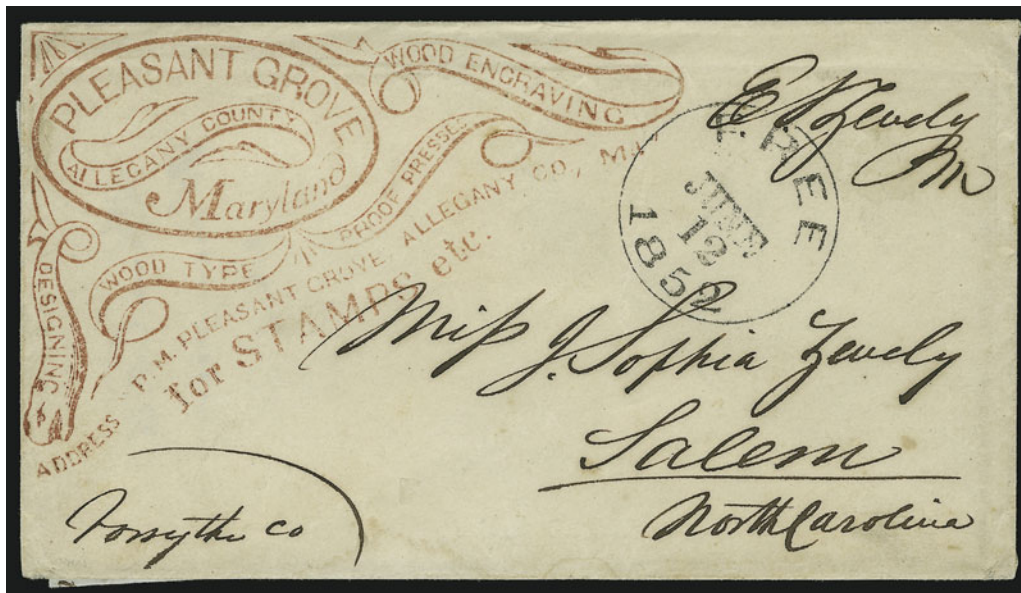 PLEASANT GROVE
ALLEGANY COUNTY
Maryland
WOOD ENGRAVING
PROOF PRESSES
WOOD TYPE
DESIGNING
ADDRESS P.M. PLEASANT GROVE ALLEGANY CO., Md
for STAMPS etc.
FREE
JUNE
12
1852
E S Zevely
PM
Miss J. Sophia Zevely
Salem
North Carolina
Forsythe co